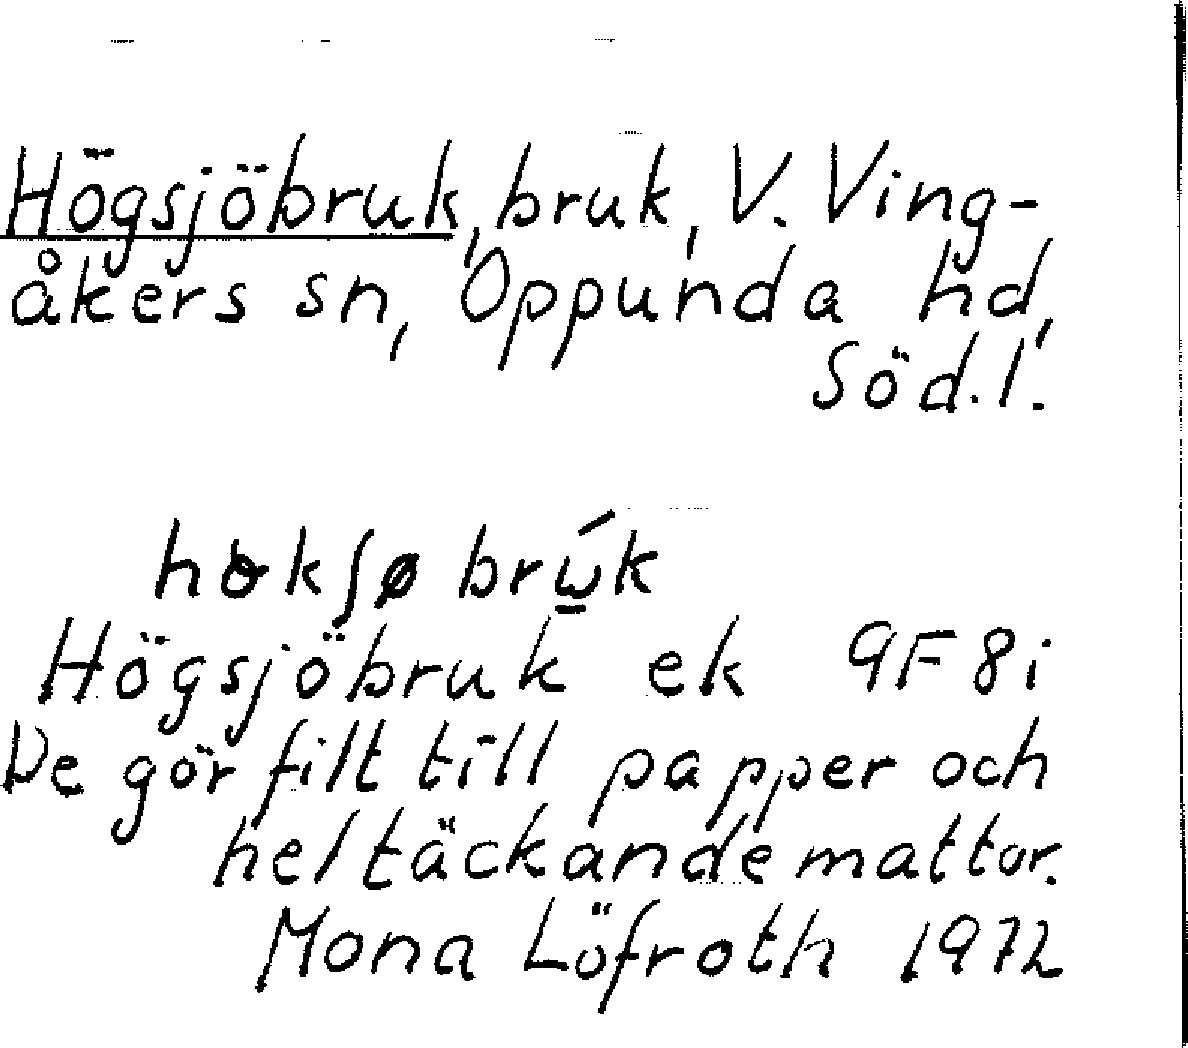 Högsjöbruk, bruk, V. Ving-
åkers sn, Oppunda hd,
Söd.l.
hɵkʃø brú̱k
Högsjöbruk ek 9F8i
De gör filt till papper och
heltäckande mattor.
Mona Löfroth 1972